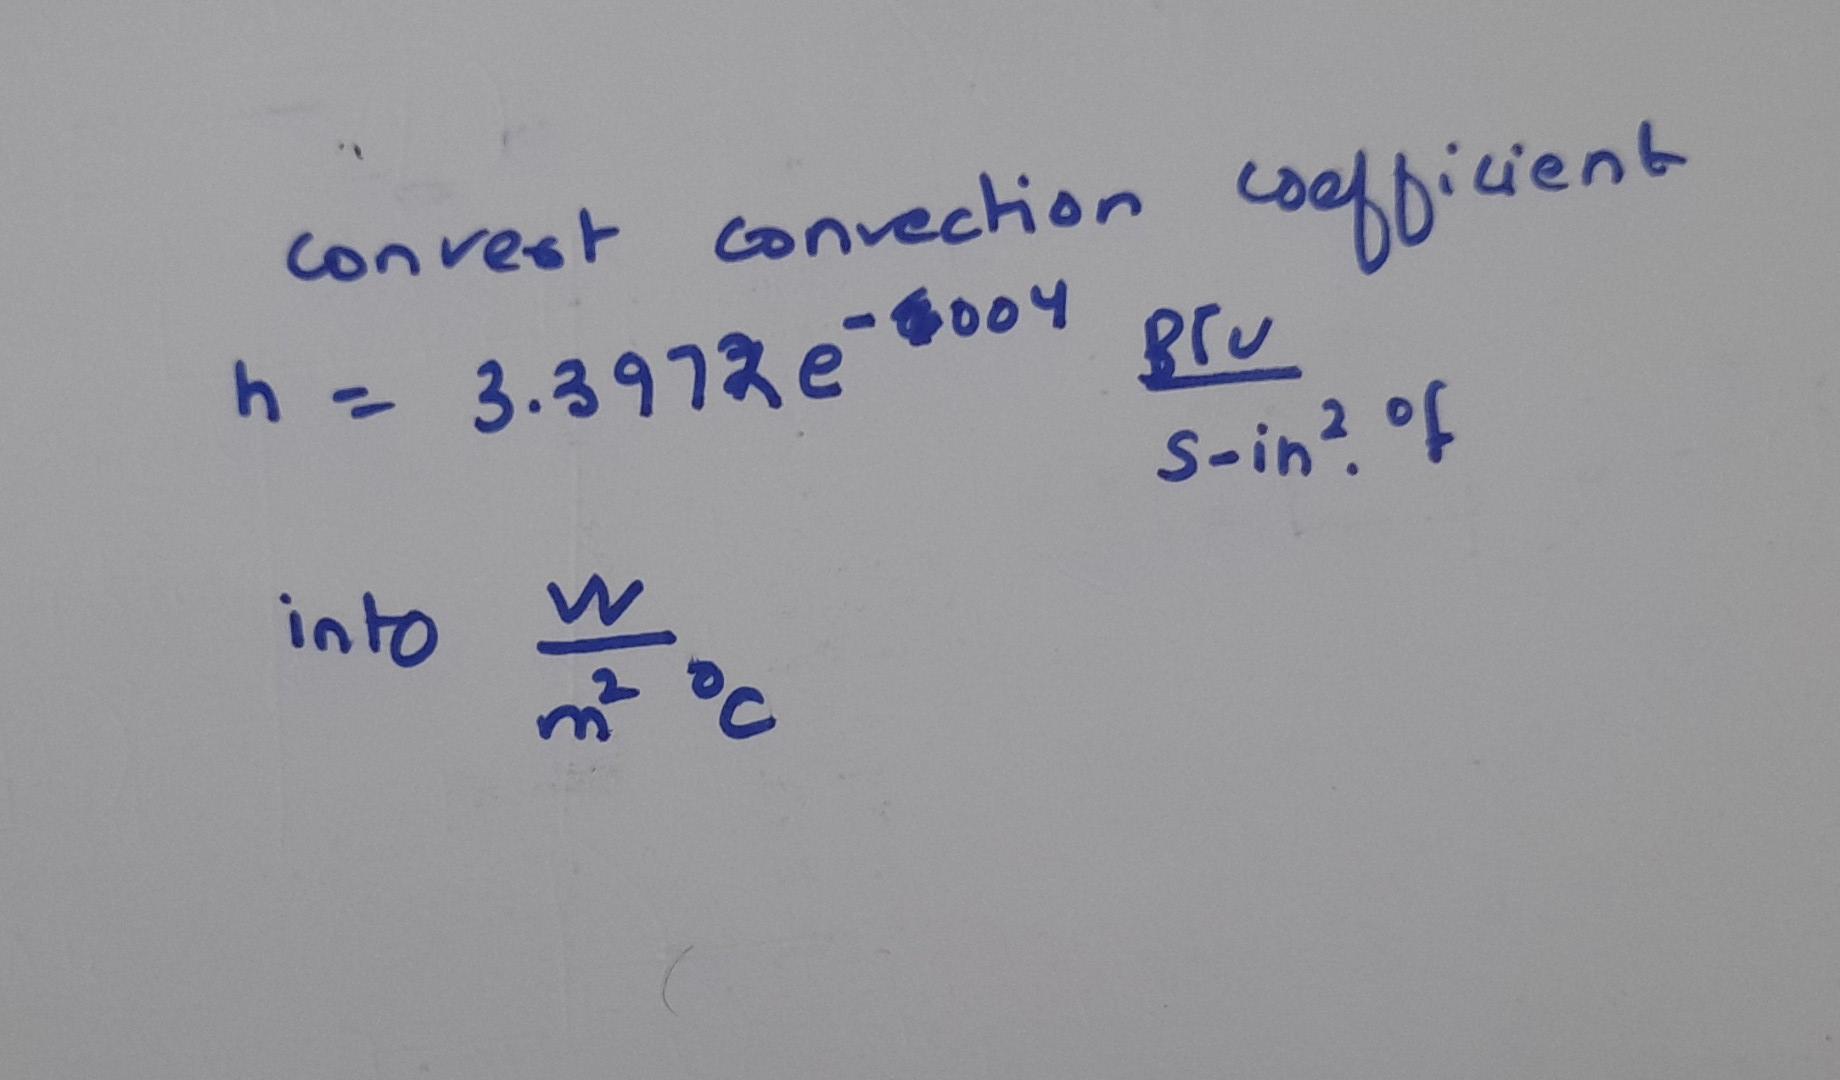 convert convection coefficient
h = 3.3972 e^-004 BTU
s-in². °f
into W
m² °C